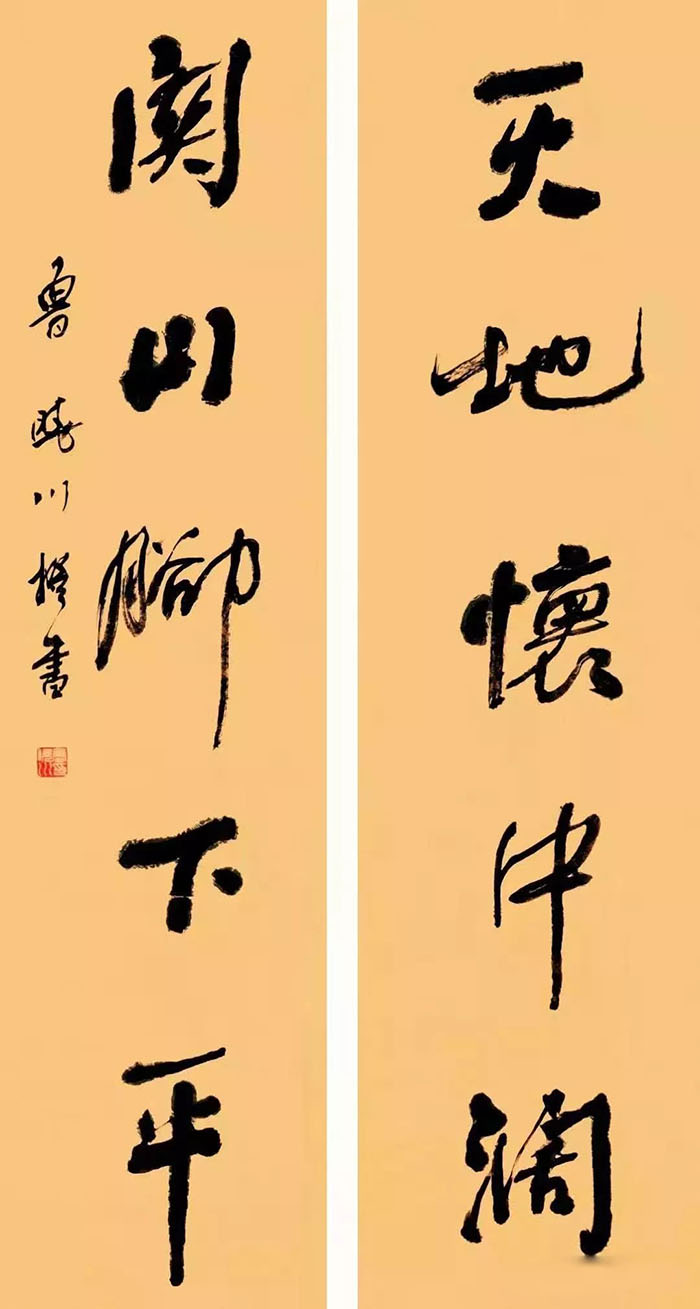 天地懷中阔
関山腳下平
魯曉川撰書